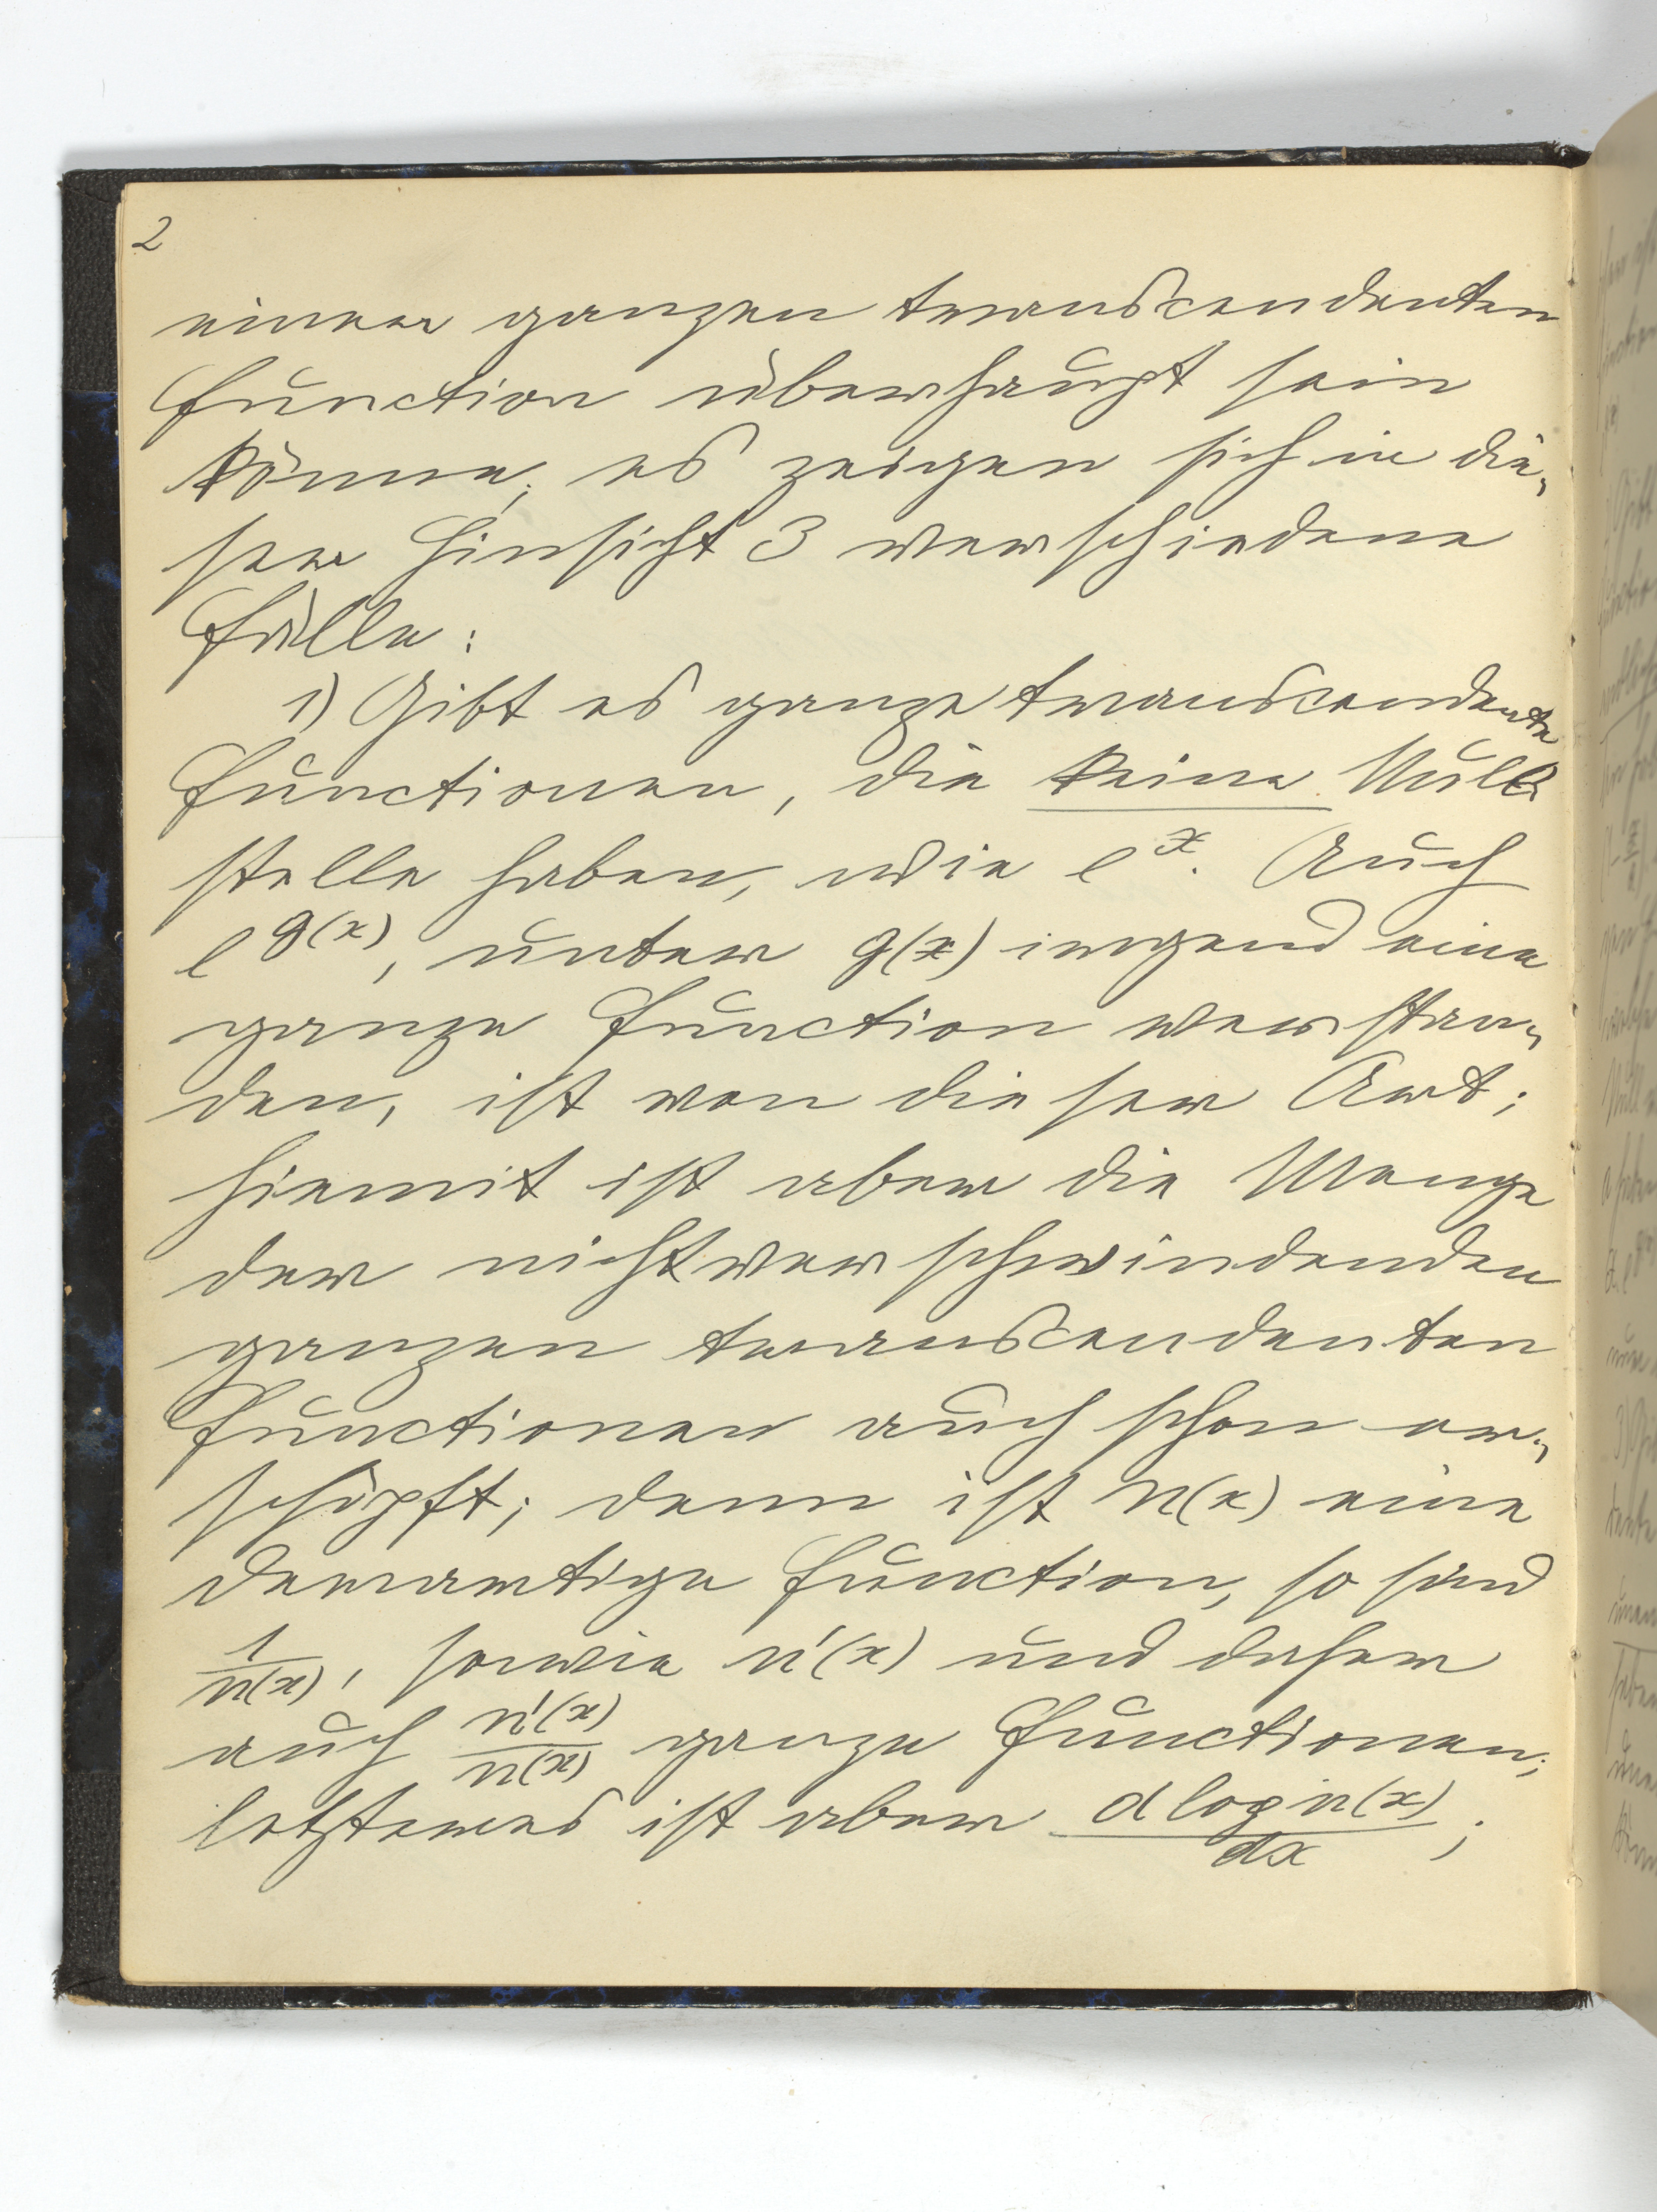 2
einer ganzen transcendenten
Function überhaupt sein
könne; es zeigen sich in die„
ser Hinsicht 3 verschiedene
Fälle:
1) Gibt es ganze transcendente
Functionen, die keine Null
stelle haben, wie e^x. Auch
e^g(x), unter g(x) irgend eine
ganze Function verstan„
den, ist von dieser Art;
hiemit ist aber die Menge
der nichtverschwindenden
ganzen transcendenten
Functionen auch schon er„
schöpft; denn ist n(x) eine
derartige Function, so sind
1/n(x), sowie n'(x) und daher
auch n'(x)/n(x) ganze Functionen;
letzteres ist aber d log n(x)/dx;